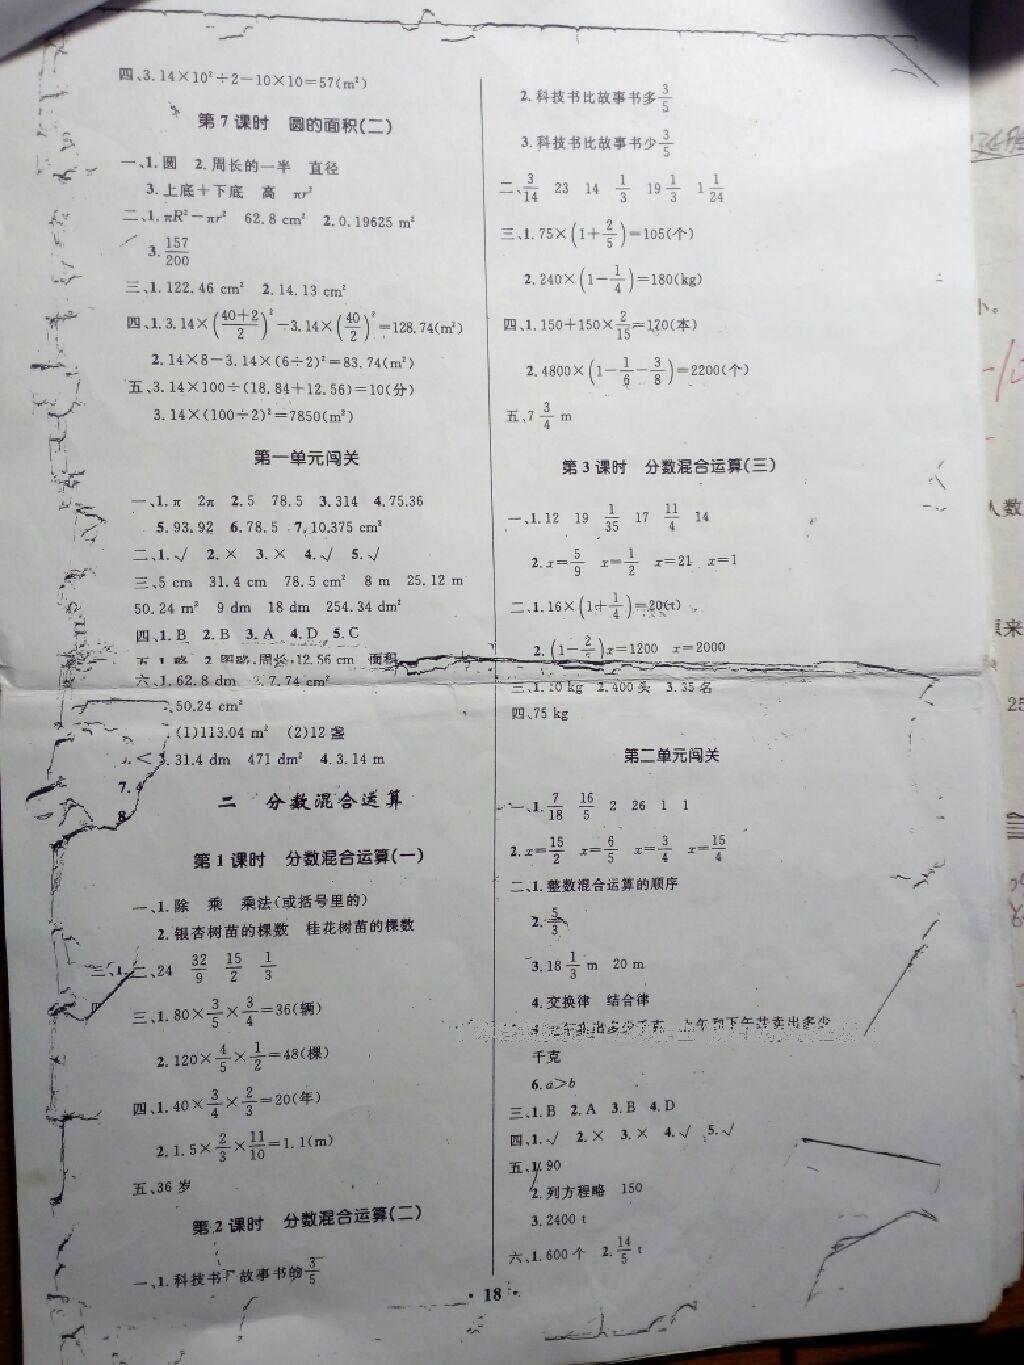 四、3.14×10²÷2−10×10=57(m²)
第 7 课时 圆的面积(二)
一、1.圆 2.周长的一半 直径
3.上底+下底 高 πr²
二、1.πR²−πr² 62.8 cm² 2.0.19625 m²
3.157/200
三、1.122.46 cm² 2.14.13 cm²
四、1.3.14×(40+2/2)²−3.14×(40/2)²=128.74(m²)
2.14×8−3.14×(6÷2)²=83.74(m²)
五、3.14×100÷(18.84+12.56)=10(分)
3.14×(100÷2)²=7850(m²)
第一单元闯关
一、1.π 2π 2.5 78.5 3.314 4.75.36
5.93.92 6.78.5 7.10.375 cm²
二、1.√ 2.× 3.× 4.√ 5.√
三、5 cm 31.4 cm 78.5 cm² 8 m 25.12 m
50.24 m² 9 dm 18 dm 254.34 dm²
四、1.B 2.B 3.A 4.D 5.C
五、1.略 2.图略 周长:12.56 cm 面积
六、1.62.8 dm 2.7.74 cm²
50.24 cm²
(1)113.04 m² (2)12 盏
< 3.31.4 dm 471 dm² 4.3.14 m
7.
8
二 分数混合运算
第 1 课时 分数混合运算(一)
一、1.除 乘 乘法(或括号里的)
2.银杏树苗的棵数 桂花树苗的棵数
三、1.二、24 32/9 15/2 1/3
三、1.80×3/5×3/4=36(辆)
2.120×4/5×1/2=48(棵)
四、1.40×3/4×2/3=20(年)
2.1.5×2/3×11/10=1.1(m)
五、36 岁
第 2 课时 分数混合运算(二)
一、1.科技书 故事书的3/5
2.科技书比故事书多3/5
3.科技书比故事书少3/5
二、3/14 23 14 1/3 19 1/3 1 1/24
三、1.75×(1+2/5)=105(个)
2.240×(1−1/4)=180(kg)
四、1.150+150×2/15=170(本)
2.4800×(1−1/6−3/8)=2200(个)
五、7 3/4 m
第 3 课时 分数混合运算(三)
一、1.12 19 1/35 17 11/4 14
2.x=5/9 x=1/2 x=21 x=1
二、1.16×(1+1/4)=20(t)
2.(1−2/5)x=1200 x=2000
三、1. 0 kg 2.400 头 3.35 名
四、75 kg
第二单元闯关
一、1.7/18 16/5 2 26 1 1
2.x=15/2 x=6/5 x=3/4 x=15/4
二、1.整数混合运算的顺序
2.5/3
3.18 1/3 m 20 m
4.交换律 结合律
上午卖出多少千克 上午和下午共卖出多少
千克
6.a>b
三、1.B 2.A 3.B 4.D
四、1.√ 2.× 3.× 4.√ 5.√
五、1.90
2.列方程略 150
3.2400 t
六、1.600 个 2.14/5 t
· 18 ·
小。
人数
原来
25